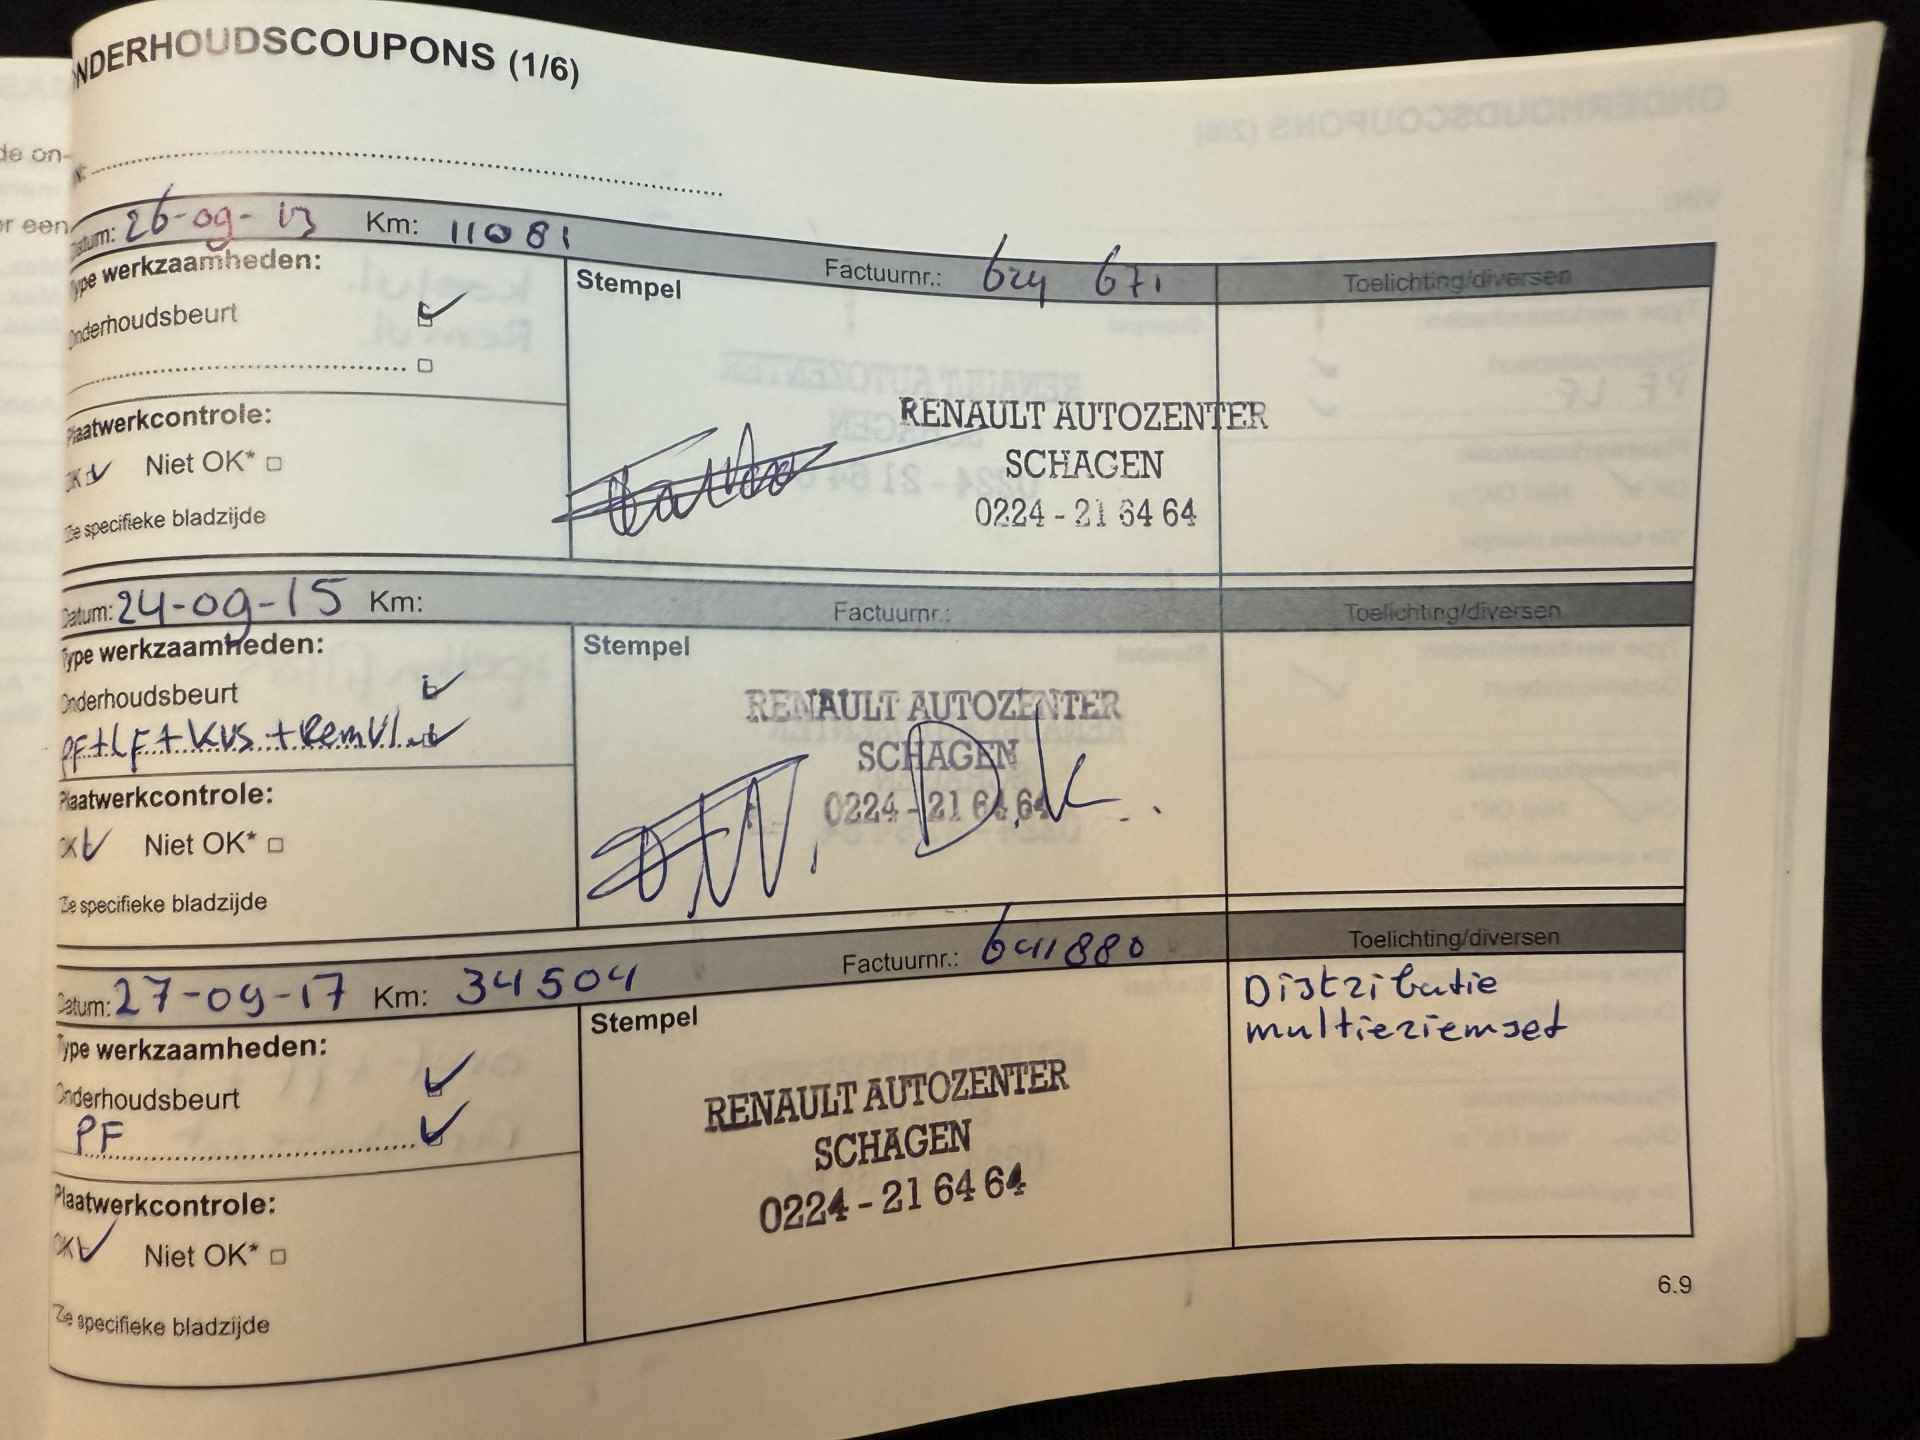 ONDERHOUDSCOUPONS (1/6)
Datum: 26-09-13 Km: 11081 Factuurnr.: 624 671 Toelichting/diversen
Type werkzaamheden:
Stempel
Onderhoudsbeurt
Plaatwerkcontrole:
OK Niet OK*
RENAULT AUTOZENTER
SCHAGEN
0224 - 21 64 64
*Zie specifieke bladzijde
Datum: 24-09-15 Km: Factuurnr.: Toelichting/diversen
Type werkzaamheden:
Stempel
Onderhoudsbeurt
PF+LF+KVS+RemVl.
Plaatwerkcontrole:
OK Niet OK*
RENAULT AUTOZENTER
SCHAGEN
0224 - 21 64 64
*Zie specifieke bladzijde
Datum: 27-09-17 Km: 34504 Factuurnr.: 641880 Toelichting/diversen
Type werkzaamheden:
Stempel
Onderhoudsbeurt
PF
Plaatwerkcontrole:
OK Niet OK*
RENAULT AUTOZENTER
SCHAGEN
0224 - 21 64 64
Distributie
multieriemset
*Zie specifieke bladzijde
6.9